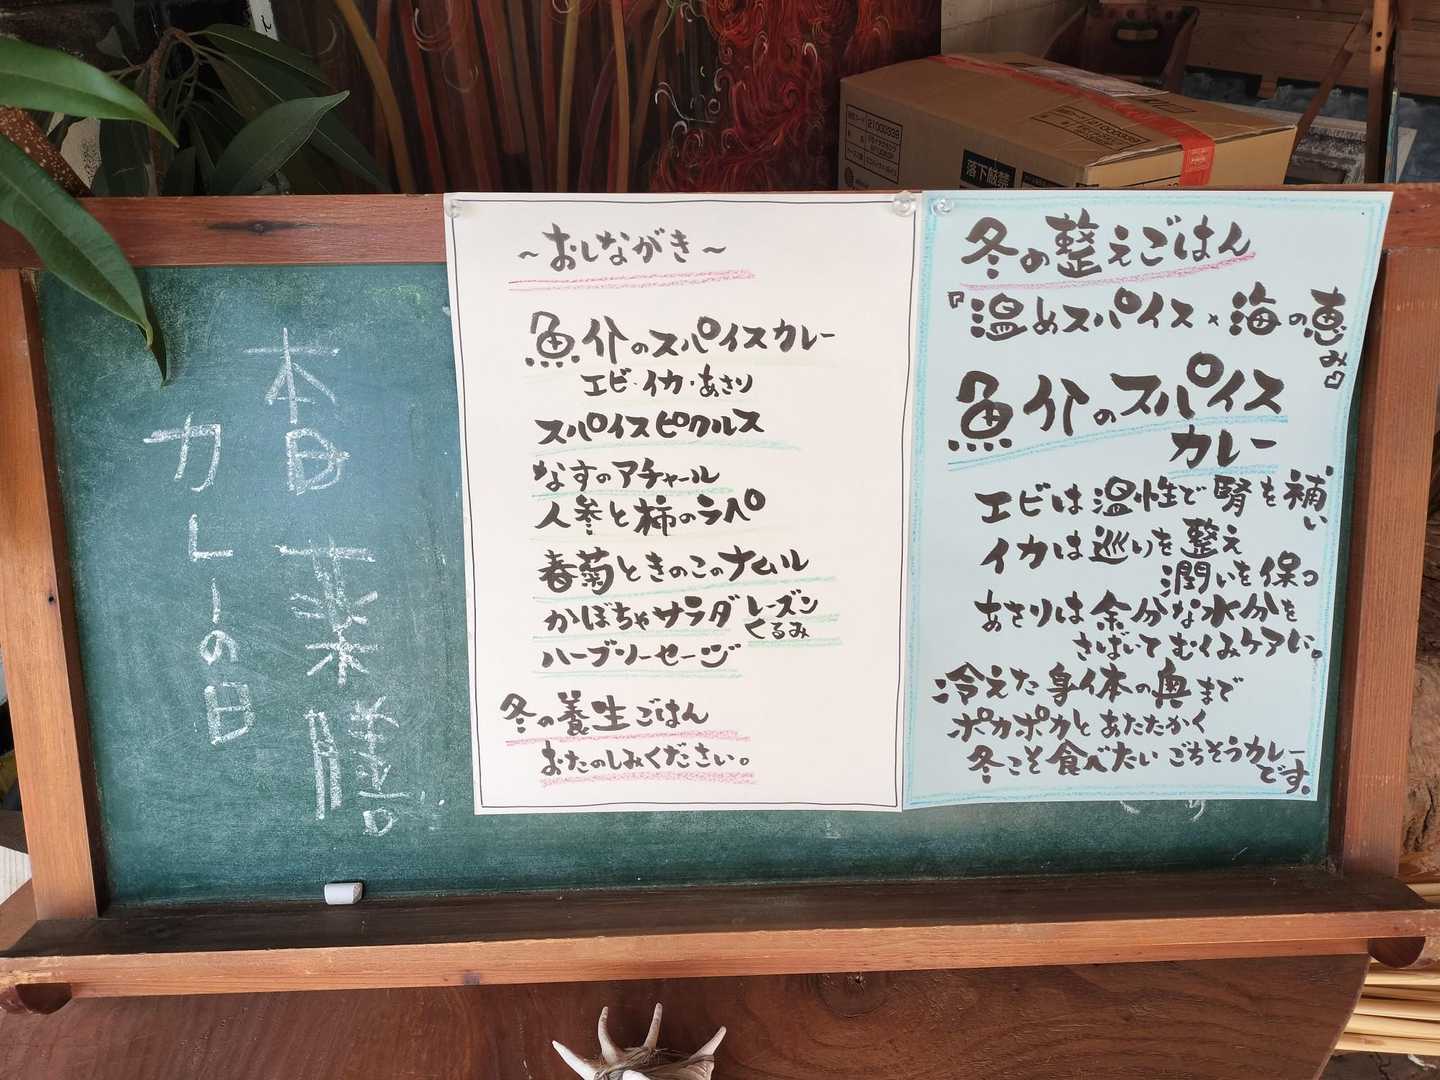 本日 薬膳
カレーの日
～おしながき～
魚介のスパイスカレー
エビ・イカ・あさり
スパイスピクルス
なすのアチャール
人参と柿のラペ
春菊ときのこのナムル
かぼちゃサラダ レーズン
くるみ
ハーブソーセージ
冬の養生ごはん
おたのしみください。
冬の整えごはん
『温めスパイス×海の恵
み』
魚介のスパイス
カレー
エビは温性で腎を補
い
イカは巡りを整え
潤いを保つ
あさりは余分な水分を
さばいてむくみケアに。
冷えた身体の奥まで
ポカポカとあたたかく
冬こそ食べたいごちそうカレー
です。
21000339
落下厳禁